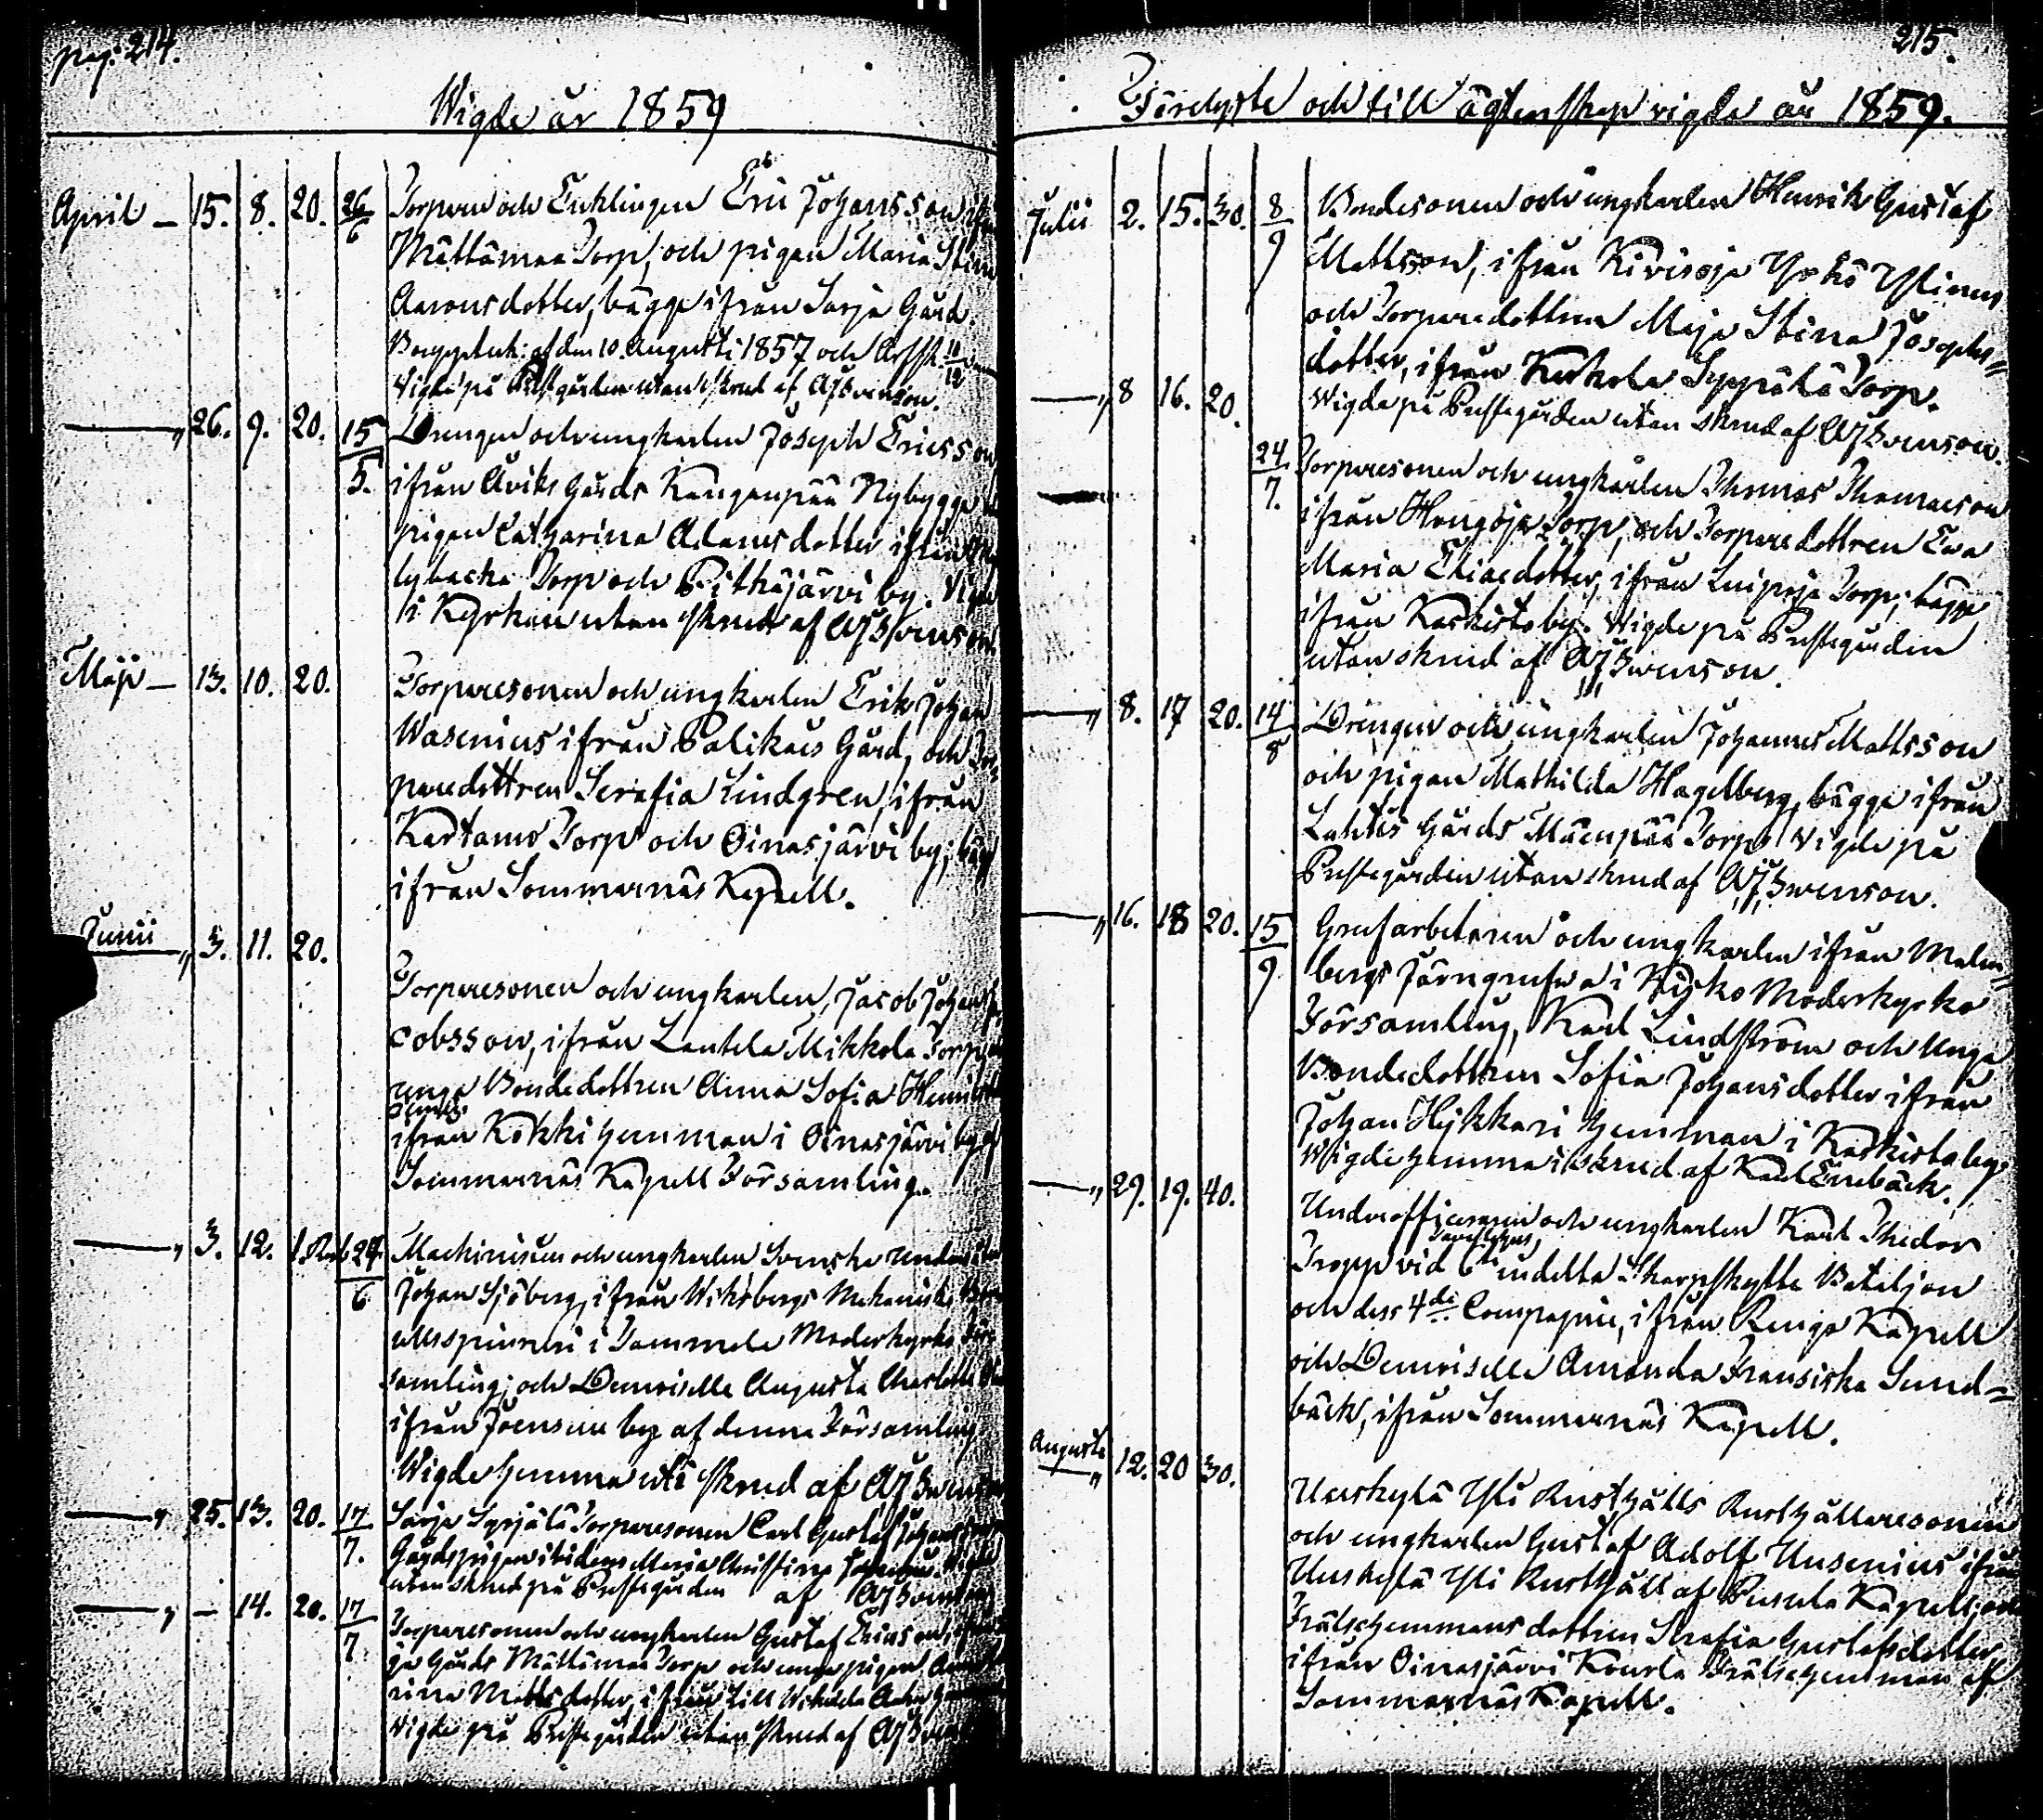 pag: 214.
Wigde år 1859
April — 15. 8. 20. 26/6 Torparen och Enklingen Eric Johansson
Mättämaa Torp, och pigan Maria Stina
Aaronsdotter, bägge ifrån Sarja Gård.
af den 10 Augusti 1857 och 10/12
Wigde på Prestgården utan skrud af AJSvenson.
—„ 26. 9. 20. 15/5. Drengen och ungkarlen Joseph Ericsson
ifrån Åviks Gårds Kangenpää Nybygge
pigan Catharina Adamsdotter ifrån
lybacka Torp och Pitkäjärvi by. Wigde
i Kyrkan utan skrud af AJSvenson.
Maji — 13. 10. 20. Torparesonen och ungkarlen Erik Johan
Wasenius ifrån Palikais Gård, och Tor
paredottren Serafia Lindgren, ifrån
Kartamo Torp och Oinasjärvi by;
ifrån Sommarnäs Kapell.
Junii „ 3. 11. 20.
Torparesonen och ungkarlen, Jacob Johan
cobsson, ifrån Lautela Mikkola Torp
unga Bondedottren Anna Sofia
ifrån Kokki hemman i Oinasjärvi by af
Sommarnäs Kapell Församling.
—„ 3. 12. 1 Rub 24/6 Machinisten och ungkarlen Svenske
Johan Sjöberg, ifrån Wiksbergs Mekaniska
ullsspinneri i Tammela Moderkyrko För
samling; och Demoiselle Augusta Charlotta
ifrån Joensuu by af denna Församling
Wigde hemma uti skrud af AJSvenson
—„ 25. 13. 20. 17/7. Särja Syrjälä Torparesonen Carl Gustaf
Gårdspigan ibidem Maria Christina
utan skrud på Prestgården af AJSvenson
—„ — 14. 20. 17/7 Torparesonen och ungkarlen Gustaf Ericson,
ja Gårds Mättämaa Torp och unga pigan
rina Mattsdotter, ifrån Lill
Wigde på Prestgården utan skrud af AJSvenson
215.
Förelyste och till ägtenskap vigde år 1859.
Julii 2. 15. 30. 8/9 Bondesonen och ungkarlen Henrik Gustaf
Mattsson, ifrån Kivisoja Yrkö
och Torparedottren Maja Stina Josephs=
dotter, ifrån Kerkola Seppälä Torp.
Wigde på Prestegården utan skrud af AJSvenson.
—„ 8 16. 20. 24/7. Torparesonen och ungkarlen Thomas Thomasson
ifrån Hongoja Torp, och Torparedottren Eva
Maria Eliaedotter, ifrån Torp; bägge
ifrån Karkisto by. Wigde på Prestegården
utan skrud af AJSvenson.
—„ 8. 17 20. 14/8 Drengen och ungkarlen Johannes Mattsson
och pigan Mathilda Hagelberg, bägge ifrån
Lahtis Gårds Mäenpää Torp Wigde på
Prestegården utan skrud af AJSvenson.
—„ 16. 18 20. 15/9 Grufarbetaren och ungkarlen ifrån Malm=
bergs Järngrufva i Kisko Moderkyrko
Församling, Karl Lindström och Unga
Bondedottren Sofia Johansdotter ifrån
Johan Hykkari hemman i Karkisto by.
Wigde hemma i skrud af Karl Enebäck.
—„ 29. 19. 40. Underofficeraren och ungkarlen Karl Thedor
Tavastehus
Tropp vid 6te indelta Skarpskytte Bataljon
och dess 4de Compagnie, ifrån Pargas Kapell
och Demoiselle Amanda Fransiska Sund=
bäck, ifrån Sommarnäs Kapell.
Augusti „ 12. 20 30.
Uuskylä Yli Rusthålls Rusthållaresonen
och ungkarlen Gustaf Adolf Unsenius ifrån
Uuskylä Yli Rusthåll af Pusula Kapell, och
Frälsehemmans dottren Serafia Gustafsdotter
ifrån Oinasjärvi Kourla Frälsehemman af
Sommarnäs Kapell.